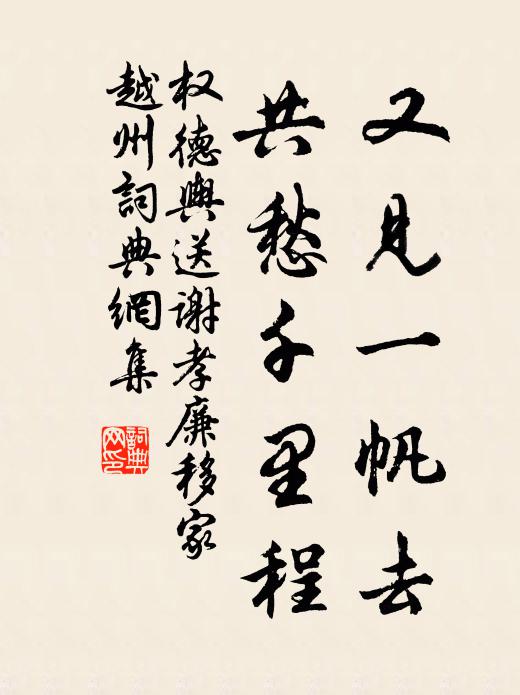 又見一帆去
共愁千里程
权德輿送謝孝廉移家
越州詞典網集
詞典
网印